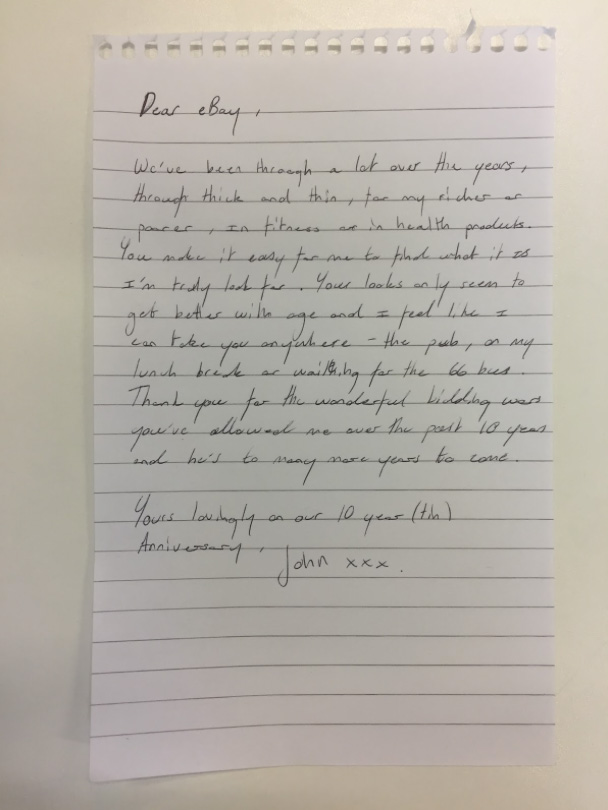 Dear eBay,
We've been through a lot over the years,
through thick and thin, for my richer or
poorer, in fitness or in health products.
You make it easy for me to find what it is
I'm truly look for. Your looks only seem to
get better with age and I feel like I
can take you anywhere - the pub, on my
lunch break or waiting for the 66 bus.
Thank you for the wonderful bidding wars
you've allowed me over the past 10 years
and he's to many more years to come.
Yours lovingly on our 10 year (tin)
Anniversary,
John xxx.